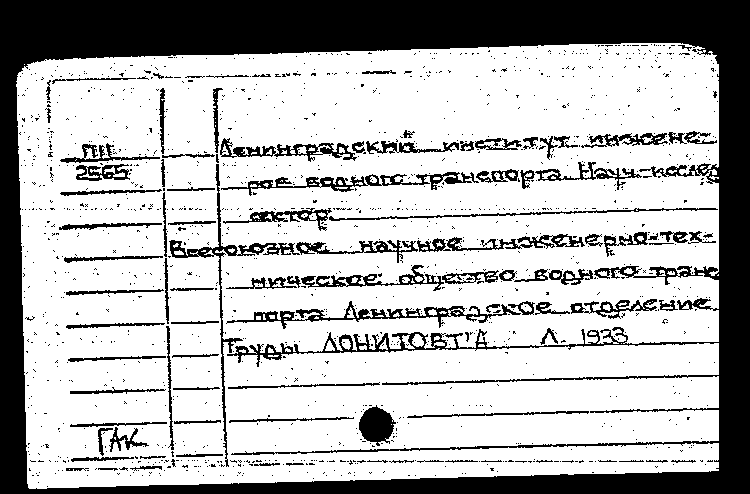 ПП
2565
Ленинградский институт инжене-
ров водного транспорта. Науч.-исслед
сектор.
Всесоюзное научное инженерно-тех-
ническое общество водного транс
порта Ленинградское отделение
Труды ЛОНИТОВТ'А Л., 1933
ГАК